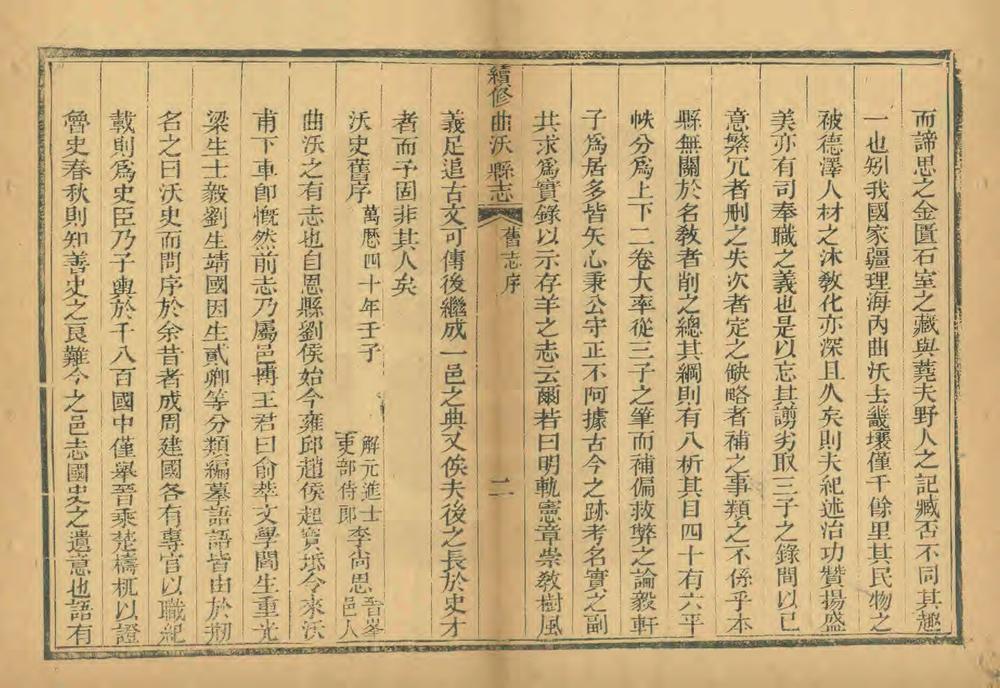 而諦思之金匱石室之藏與蕘夫野人之記臧否不同其趣
一也矧我國家疆理海內曲沃去畿壤僅千餘里其民物之
被德澤人材之沐教化亦深且久矣則夫紀述治功贊揚盛
美亦有司奉職之義也是以忘其譾劣取三子之錄間以己
意繁冗者刪之失次者定之缺略者補之事類之不係乎本
縣無關於名教者削之總其綱則有八析其目四十有六平
帙分爲上下二卷大率從三子之筆而補偏救弊之論毅軒
子爲居多皆矢心秉公守正不阿據古今之跡考名實之副
共求爲實錄以示存羊之志云爾若曰明軌憲章崇教樹風
續修曲沃縣志 舊志序 二
義足追古文可傳後繼成一邑之典又俟夫後之長於史才
者而予固非其人矣
沃史舊序 萬曆四十年壬子 解元進士吏部侍郎李尚思晉峯邑人
曲沃之有志也自恩縣劉侯始今雍邱趙侯起寶坻令來沃
甫下車卽慨然前志乃屬邑博王君曰俞萃文學閻生重光
梁生士毅劉生靖國因生貳卿等分類編摹語語皆由於剏
名之曰沃史而問序於余昔者成周建國各有專官以職紀
載則爲史臣乃子輿於千八百國中僅舉晉乘楚檮杌以證
魯史春秋則知善史之良難今之邑志國史之遺意也語有